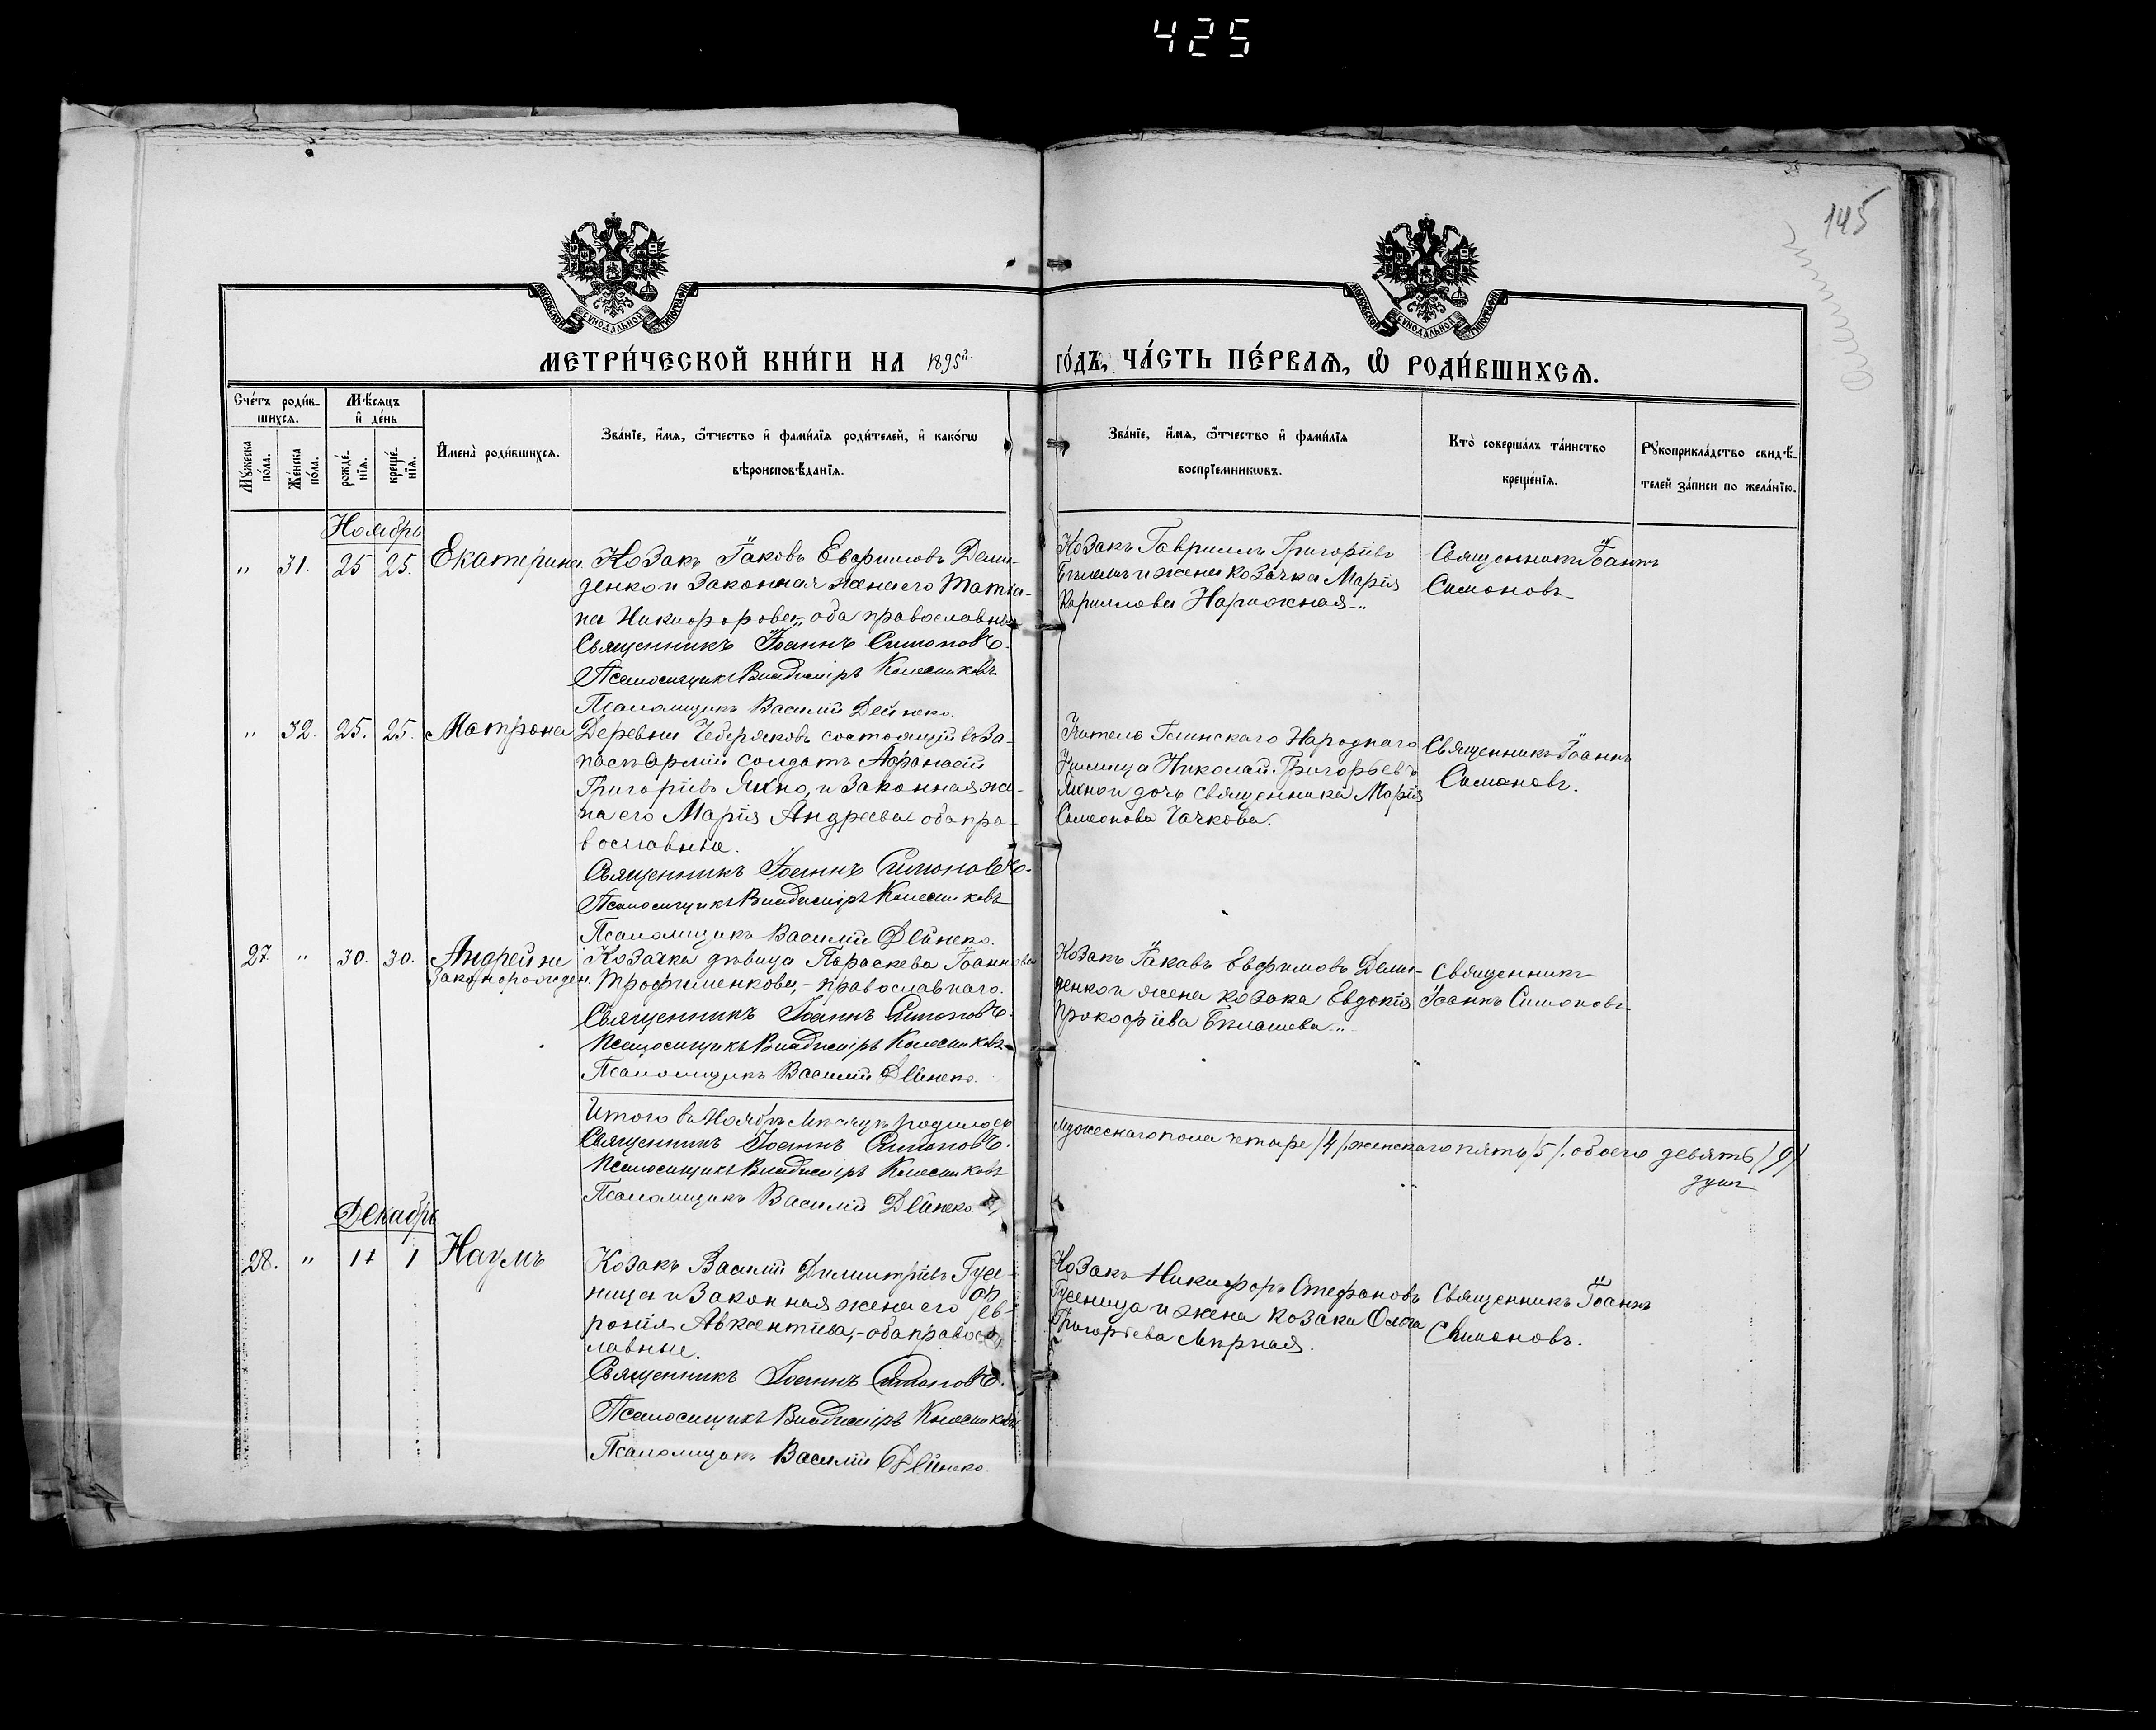 425
145
МОСКОВСКОЙ СѴНОДАЛЬНОЙ ТИПОГРАФІИ
МОСКОВСКОЙ СѴНОДАЛЬНОЙ ТИПОГРАФІИ
МЕТРИ́ЧЕСКОЙ КНИ́ГИ НА 1895й
ГО́ДЪ, ЧА́СТЬ ПЕ́РВАѦ, Ѡ҆ РОДИ́ВШИХСѦ.
Сче́тъ роди́в-
шихсѧ.
Мѹ́жеска по́ла.
Же́нска по́ла.
Мѣ́сѧцъ
и҆ де́нь
рожде́-
нїѧ.
креще́-
нїѧ.
И҆мена̀ роди́вшихсѧ.
Зва́нїе, и҆́мѧ, ѻ҆́тчество и҆ фами́лїѧ роди́телей, и҆ како́гѡ
вѣроисповѣ́данїѧ.
Зва́нїе, и҆́мѧ, ѻ҆́тчество и҆ фами́лїѧ
воспрїе́мникѡвъ.
Кто̀ соверша́лъ та́инство
креще́нїѧ.
Рѹкоприкла́дство свидѣ́-
телей за́писи по жела́нїю.
Ноябрь
" 31. 25 25. Екатерина
Козакъ Іаковъ Евфимовъ Деми-
денко и законная жена его Татiа-
на Никифорова, оба православные
Священникъ Іоаннъ Симоновъ.
Псаломщикъ Владиміръ Колесниковъ
Псаломщикъ Василій Дейнеко.
Козакъ Гавриилъ Григоріевъ
и жена козачка Марія
Кириллова Нарижная
Священникъ Іоаннъ
Симоновъ
" 32. 25. 25. Матрона
Деревни Чеберяковъ состоящій въ За-
пасѣ Арміи солдатъ Афанасій
Григоріевъ Яхно, и законная же-
на его Марія Андреева оба пра-
вославные.
Священникъ Іоаннъ Симоновъ.
Псаломщикъ Владиміръ Колесниковъ
Псаломщикъ Василій Дейнеко.
Учитель Глинскаго Народнаго
Училища Николай Григорьевъ
Яхно и дочь священника Марія
Симеонова Чачкова.
Священникъ Іоаннъ
Симоновъ.
27 " 30. 30. Андрей не
законорожден.
Козачка дѣвица Параскева Іоаннова
Трофименкова, - православнаго.
Священникъ Іоаннъ Симоновъ.
Псаломщикъ Владиміръ Колесниковъ
Псаломщикъ Василій Дейнеко.
Козакъ Іаковъ Евфимовъ Деми-
денко и жена козака Евдокія
Прокофіева
Священникъ
Іоаннъ Симоновъ
Итого въ Ноябрѣ Мѣсяцѣ родилось
мужескаго пола четыре /4/, женскаго пять /5/. обоего девять /9/
душъ
Священникъ Іоаннъ Симоновъ.
Псаломщикъ Владиміръ Колесниковъ
Псаломщикъ Василій Дейнеко
Декабрь
28. " 1 Наумъ
Козакъ Василій Димитріевъ Гусе-
ница и законная жена его Фев-
ронія Авксентіева, - оба правос-
лавные.
Священникъ Іоаннъ Симоновъ.
Псаломщикъ Владиміръ Колесниковъ
Псаломщикъ Василій Дейнеко.
Козакъ Никифоръ Стефановъ
Гусеница и жена козака Ольга
Григорьева Мирная.
Священникъ Іоаннъ
Симоновъ.